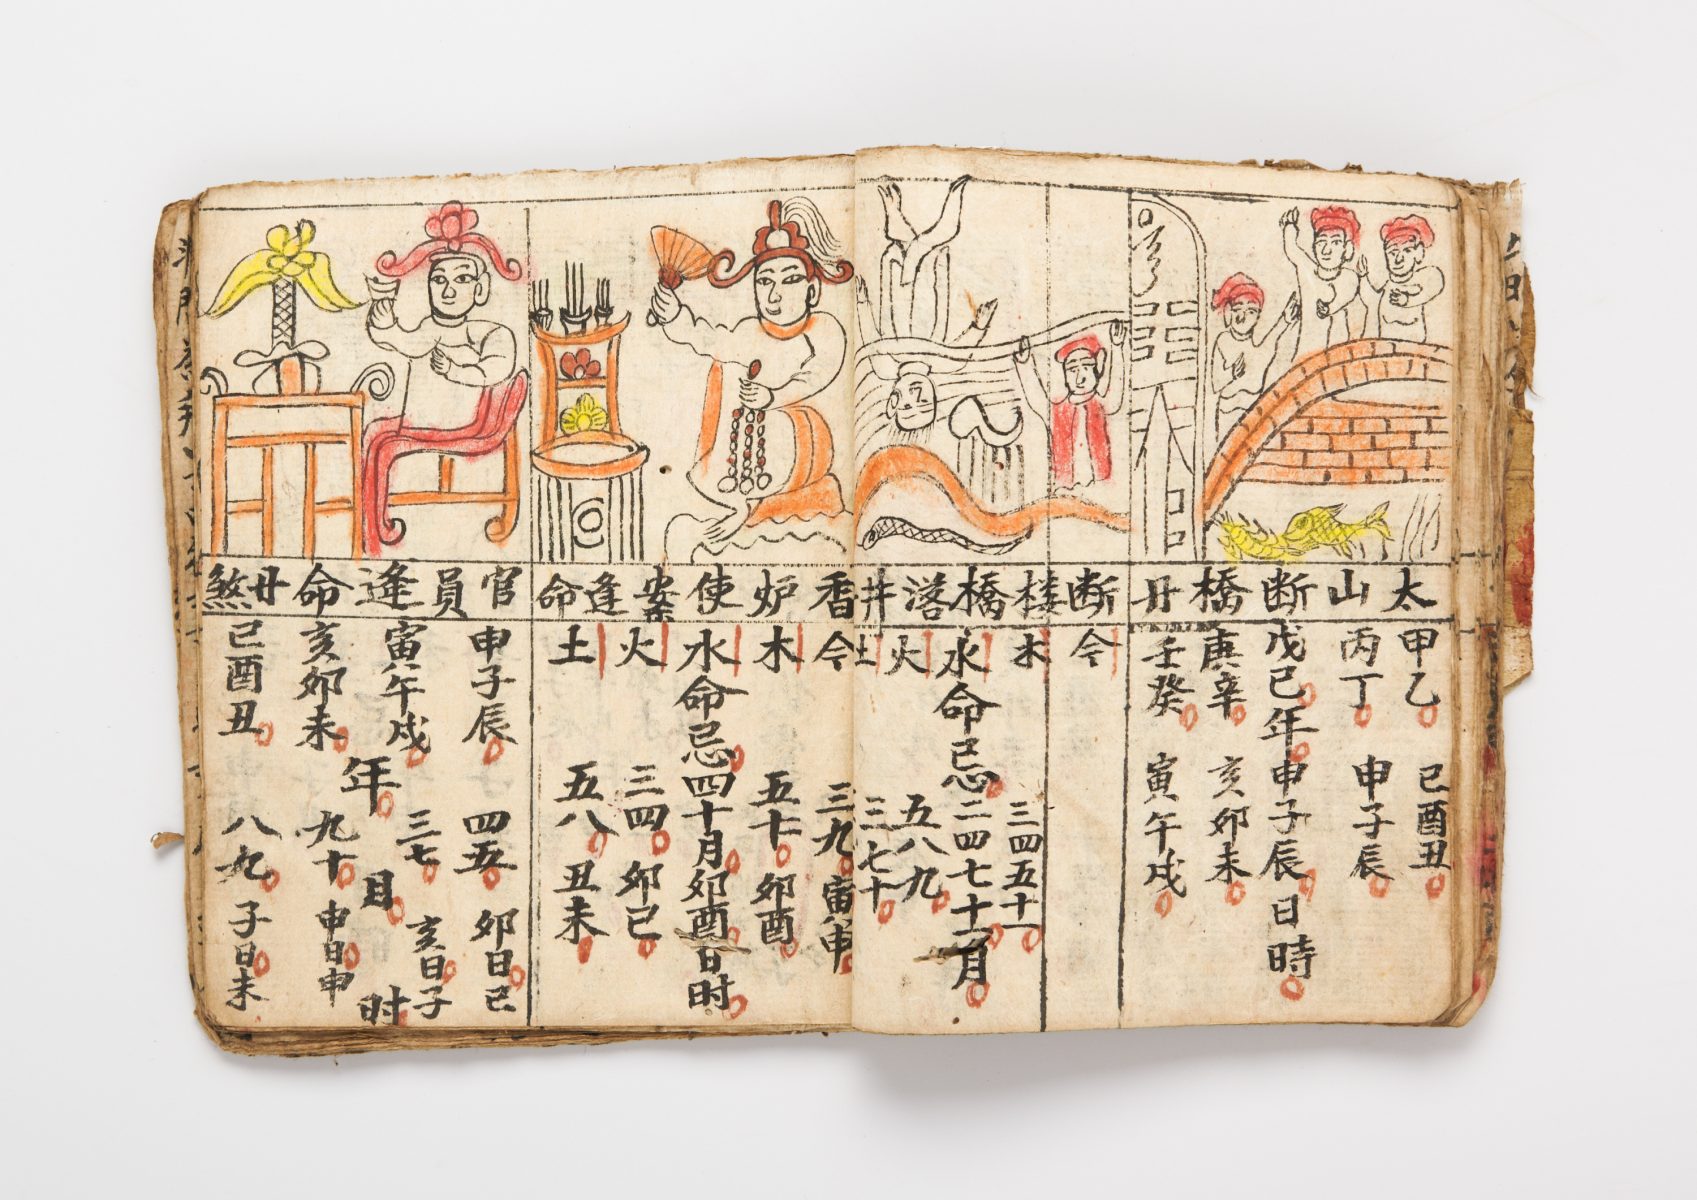 太山断橋廿
甲乙 己酉丑
丙丁 申子辰
戊己年申子辰日時
庚辛 亥卯未
壬癸 寅午戌
断楼橋落井
今
木 三四五十一
水命忌二四七十一月
火 五八九
土 三七十
香炉使案逢命
今 三九 寅申
木 五十 卯酉
水命忌四十月卯酉日时
火 三四 卯巳
土 五八 丑未
官員逢命廿煞
申子辰 四五 卯日巳
寅午戌 三七 亥日子
年 月 时
亥卯未 九十 申日申
巳酉丑 八九 子日未